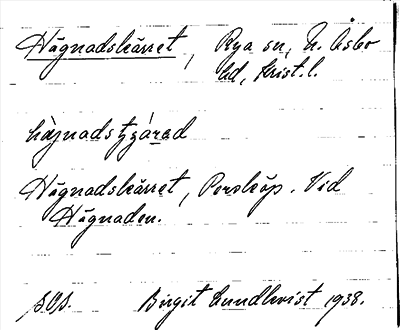 Hägnadskärret, Rya sn, N. Åsbo
hd, Krist. l.
Hägnadskärret, Perstorp. Vid
Hägnaden.
Birgit Lundkvist 1938.